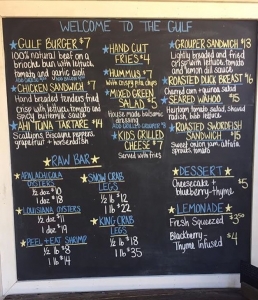 WELCOME TO THE GULF
GULF BURGER $7
100% natural beef on a
brioche bun with lettuce,
tomato and garlic aioli
CHICKEN SANDWICH $7
Hand breaded tenders fried
crisp with lettuce, tomato and
spicy buttermilk sauce
AHI TUNA TARTARE $14
Scallions, piquant peppers,
grapefruit + horseradish
HAND CUT
FRIES $4
HUMMUS $7
with crispy pita chips
MIXED GREEN
SALAD $5
House made balsamic
dressing
KIDS GRILLED
CHEESE $7
Served with fries
GROUPER SANDWICH $13
Lightly breaded and fried
crisp with lettuce, tomato
and lemon aioli sauce
ROASTED DUCK BREAST $16
Charred corn + quinoa salad
SEARED WAHOO
Heirloom tomato salad, shaved
radish, basil
ROASTED SWORDFISH
SANDWICH $15
Sweet onion jam, alfalfa
sprouts, tomato
RAW BAR
APALACHICOLA
OYSTERS
1/2 doz $10
1 doz $18
LOUISIANA OYSTERS
1/2 doz $11
1 doz $19
PEEL + EAT SHRIMP
1/2 lb $8
1 lb $14
SNOW CRAB
LEGS
1/2 lb $12
1 lb $22
KING CRAB
LEGS
1/2 lb $18
1 lb $35
DESSERT
Cheesecake + $5
blueberry-thyme
LEMONADE
Fresh Squeezed $3.50
Blackberry-
Thyme Infused $4